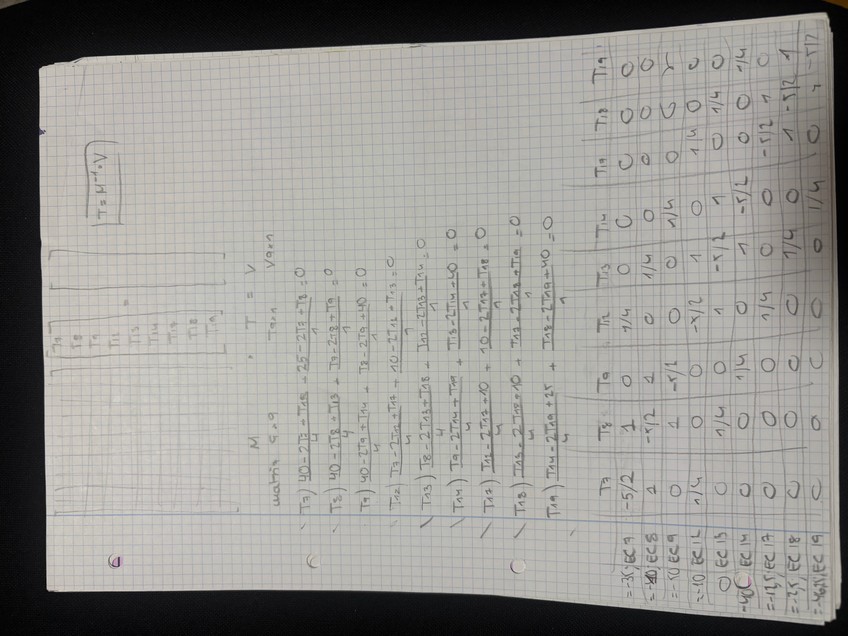 T = M⁻¹·V
T7
T8
T9
T12
T13
T14
T17
T18
T19
=
M · T = V
matrix 9×9 T9×1 V9×1
T7) (40-2T7+T12)/4 + (25-2T7+T8)/1 = 0
T8) (40-2T8+T13)/4 + (T7-2T8+T9)/1 = 0
T9) (40-2T9+T14)/4 + (T8-2T9+40)/1 = 0
T12) (T7-2T12+T17)/4 + (10-2T12+T13)/1 = 0
T13) (T8-2T13+T18)/4 + (T12-2T13+T14)/1 = 0
T14) (T9-2T14+T19)/4 + (T13-2T14+40)/1 = 0
T17) (T12-2T17+10)/4 + (10-2T17+T18)/1 = 0
T18) (T13-2T18+10)/4 + (T17-2T18+T19)/1 = 0
T19) (T14-2T19+25)/4 + (T18-2T19+40)/1 = 0
T7 T8 T9 T12 T13 T14 T17 T18 T19
=-35; EC7 -5/2 1 0 1/4 0 0 0 0 0
EC8 1 -5/2 1 0 1/4 0 0 0 0
=-50 EC9 0 1 -5/2 0 0 1/4 0 0
=-10 EC12 1/4 0 0 -5/2 1 0 1/4 0 0
0 EC13 0 1/4 0 1 -5/2 1 0 1/4 0
-40 EC14 0 0 1/4 0 1 -5/2 0 0 1/4
=-12,5; EC17 0 0 0 1/4 0 0 -5/2 1 0
=-2,5; EC18 0 0 0 0 1/4 0 1 -5/2 1
=-46,25; EC19 0 0 0 0 0 1/4 0 1 -5/2